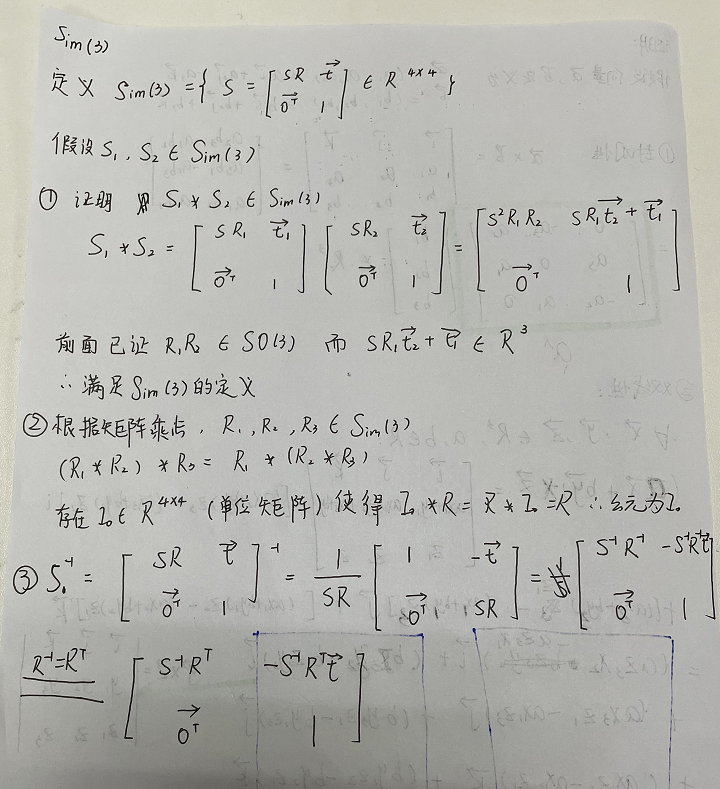 Sim(3)
定义 Sim(3) = { S = [ sR t⃗ ; 0⃗ᵀ 1 ] ∈ R⁴ˣ⁴ }
假设 S₁, S₂ ∈ Sim(3)
① 证明 S₁*S₂ ∈ Sim(3)
S₁*S₂ = [ sR₁ t⃗₁ ; 0⃗ᵀ 1 ] [ sR₂ t⃗₂ ; 0⃗ᵀ 1 ] = [ s²R₁R₂ sR₁t⃗₂+t⃗₁ ; 0⃗ᵀ 1 ]
前面已证 R₁R₂ ∈ SO(3) 而 sR₁t⃗₂+t⃗₁ ∈ R³
∴ 满足Sim(3)的定义
② 根据矩阵乘法, R₁, R₂, R₃ ∈ Sim(3)
(R₁*R₂)*R₃ = R₁*(R₂*R₃)
存在 I₀ ∈ R⁴ˣ⁴ (单位矩阵) 使得 I₀*R = R*I₀ = R ∴幺元为I₀
③ S⁻¹ = [ sR t⃗ ; 0⃗ᵀ 1 ]⁻¹ = 1/sR [ 1 -t⃗ ; 0⃗ᵀ sR ] = [ s⁻¹R⁻¹ -s⁻¹R⁻¹t⃗ ; 0⃗ᵀ 1 ]
R⁻¹=Rᵀ [ s⁻¹Rᵀ -s⁻¹Rᵀt⃗ ; 0⃗ᵀ 1 ]